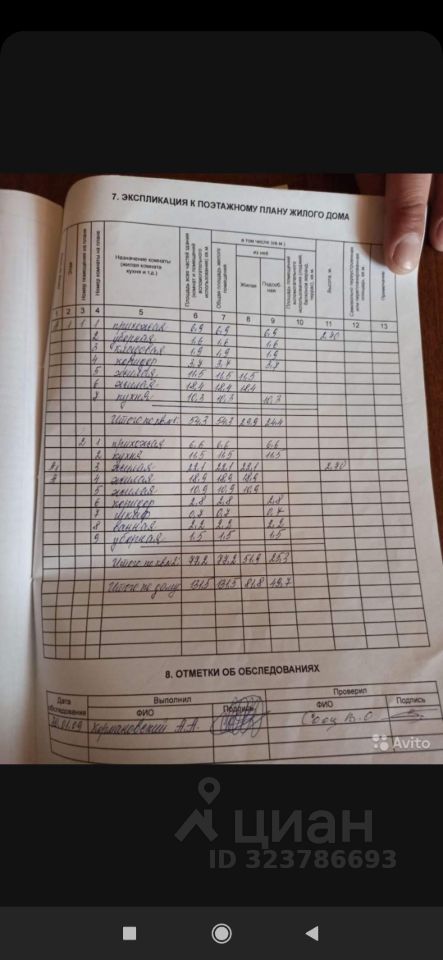 7. ЭКСПЛИКАЦИЯ К ПОЭТАЖНОМУ ПЛАНУ ЖИЛОГО ДОМА
Этаж
Номер помещения на плане
Номер комнаты на плане
Назначение комнаты (жилая комната кухня и т.д.)
Общая площадь жилого помещения
в том числе (кв.м.)
из неё
Жилая
Подсобная
Высота, м
Примечание
1 2 3 4 5 6 7 8 9 10 11 12 13
1 1 1 прихожая 6,9 6,9 6,9 2,70
2 уборная 1,6 1,6 1,6
3 кладовая 1,9 1,9 1,9
4 коридор 3,7 3,7 3,7
5 жилая 11,5 11,5 11,5
6 жилая 18,4 18,4 18,4
7 кухня 10,3 10,3 10,3
Итого по кв.1: 54,3 54,3 29,9 24,4
2 1 прихожая 6,6 6,6 6,6
2 кухня 11,5 11,5 11,5
3 жилая 22,1 22,1 22,1 2,70
4 жилая 18,9 18,9 18,9
5 жилая 10,9 10,9 10,9
6 коридор 2,8 2,8 2,8
7 шкаф 0,7 0,7 0,7
8 ванная 2,2 2,2 2,2
9 уборная 1,5 1,5 1,5
Итого по кв.2: 77,2 77,2 51,9 25,3
Итого по дому: 131,5 131,5 81,8 49,7
8. ОТМЕТКИ ОБ ОБСЛЕДОВАНИЯХ
Дата обследования
Выполнил
Проверил
ФИО
Подпись
ФИО
Подпись
01.09
А.А.
В.О.
Avito
циан
ID 323786693